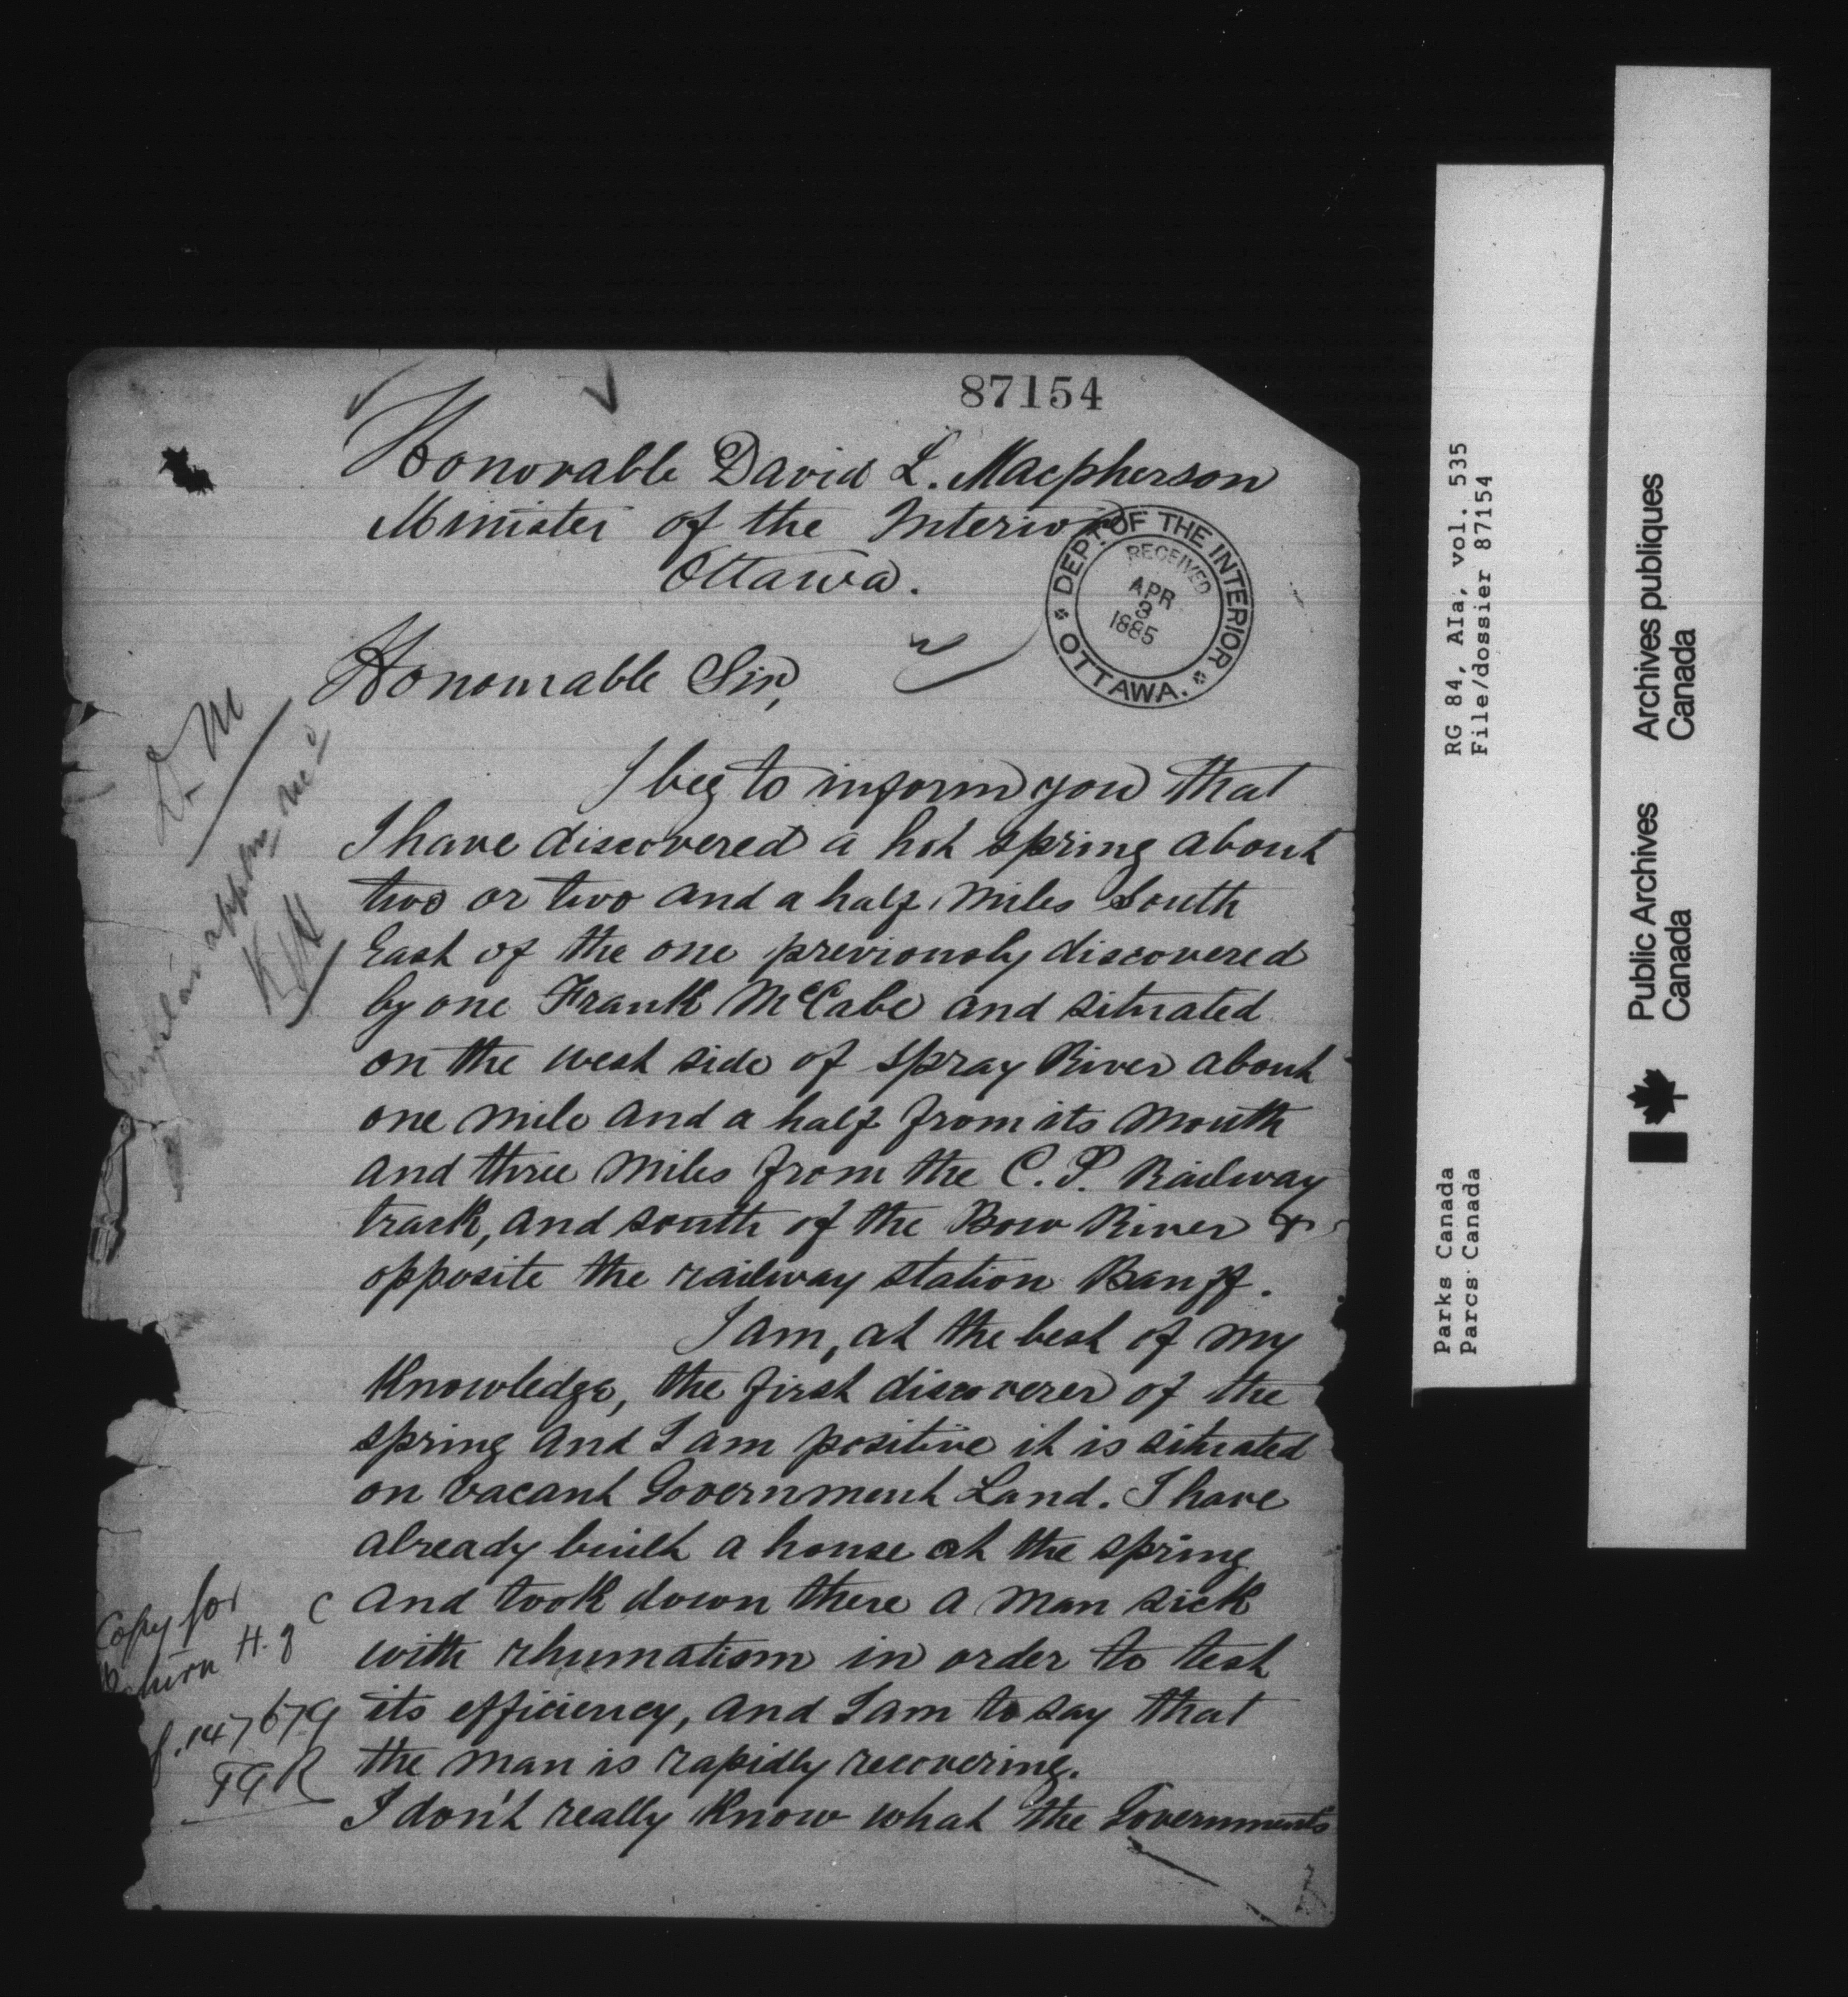 87154
Honorable David L. Macpherson
Minister of the Interior
Ottawa.
DEPT. OF THE INTERIOR
RECEIVED
APR
3
1885
OTTAWA.
Honourable Sir,
I beg to inform you that
I have discovered a hot spring about
two or two and a half miles South
East of the one previously discovered
by one Frank McCabe and situated
on the west side of Spray River about
one mile and a half from its mouth
and three miles from the C. P. Railway
track, and south of the Bow River &
opposite the railway station Banff.
I am, at the best of my
Knowledge, the first discoverer of the
spring and I am positive it is situated
on vacant Government Land. I have
already built a house at the spring
and took down there a man sick
with rhumatism in order to test
its efficiency, and I am to say that
the man is rapidly recovering.
I don't really Know what the Governments
Copy for
Return H. of C
f. 147679
RG 84, AIa, vol. 535
File/dossier 87154
Parks Canada
Parcs Canada
Public Archives
Canada
Archives publiques
Canada